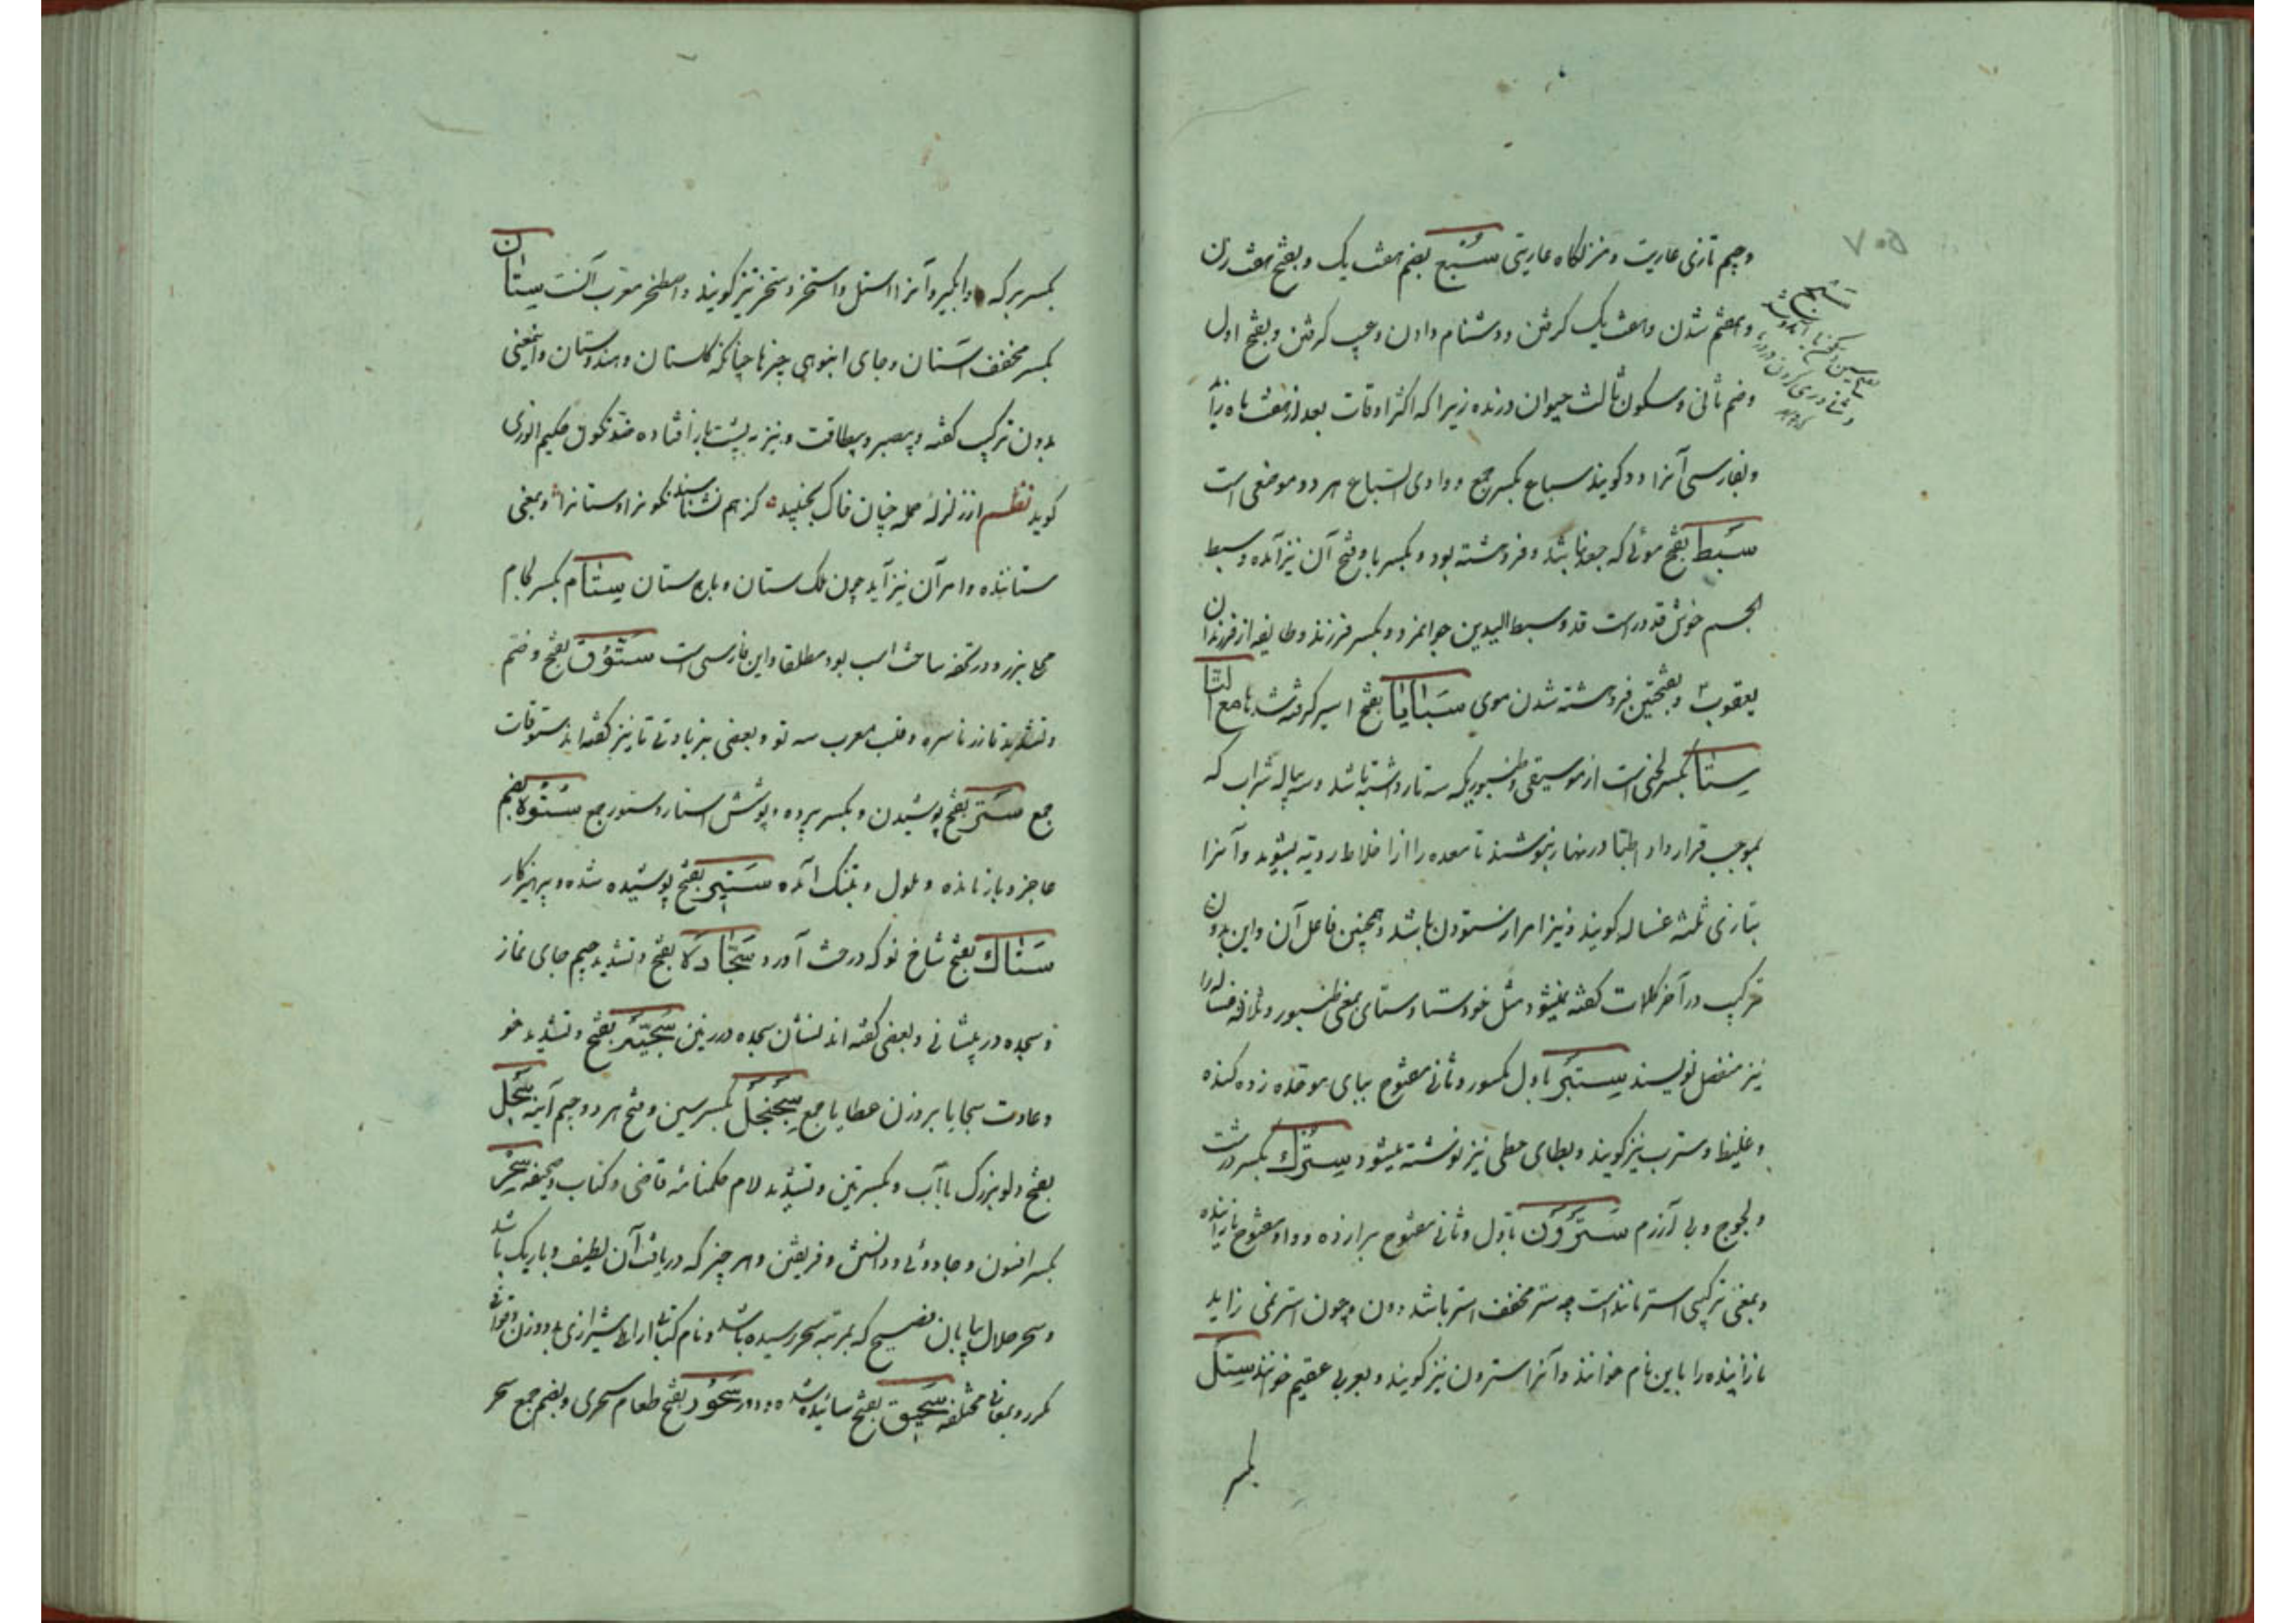 وجیم تازی عاریت و منزلگاه عاریتی سُبْع بضم هفت یک و بفتح هفت زدن
و هفتم شدن و هفت یک گرفتن و دشنام دادن و عیب کردن و بفتح اول
وضم ثانی و سکون ثالث حیوان درنده زیرا که اکثر اوقات بعد از هفت ماه زاید
و بفارسی آنرا دد گویند سباع بکسر جمع و وادی السباع هر دو موضعی است
سَبط بفتح موئی که جعد نباشد و فروهشته بود و بکسر با و فتح آن نیز آمده و سبط
الجسم خوش قد و راست قد و سبط الیدین جوانمرد و بکسر فرزند و طایفه از فرزندان
یعقوبؑ و بفتحتین فروهشته شدن موی سَبَایَا بفتح اسیر گرفته شدها مع التا
سِتا بکسر لحنی است از موسیقی و طنبوریکه سه تار داشته باشد و سه پیاله شراب که
بموجب قرارداد اطبا در نهار بنوشند تا معده را از اخلاط ردیه بشوید و آنرا
بتازی ثلثه غساله گویند و نیز امر از ستودن باشد و همچنین فاعل آن و این بدون
ترکیب در آخر کلمات گفته نمیشود مثل خودستا و ستای بمعنی طنبور و ثلاثه غساله را
نیز منفصل نویسند سِتَبر باول مکسور و ثانی مفتوح ببای موحده زده گنده
و غلیظ و سترب نیز گویند و بطای حطی نیز نوشته میشود سِتُرْک بکسر درشت
و لجوج و بی آزرم سَتَرْوَن باول و ثانی مفتوح برا زده و واو مفتوح نازاینده
و بمعنی ترکیبی استر مانند است چه ستر مخفف استر باشد و ون چون استر نمی زاید
نازاینده را باین نام خوانند و آنرا استرون نیز گویند و بعربی عقیم خوانند سِتل
بکسر
بکسر برکه و آبگیر و آنرا استل و استخر و ستخر نیز گویند و اصطخر معرب آنست سِتان
بکسر مخفف آستان و جای انبوهی چیزها چنانکه گلستان و هندوستان و اینمعنی
بدون ترکیب گفته و بیصبر و بیطاقت و نیز به پشت باز افتاده ضد نگون حکیم انوری
گوید نظم از زلزله حمله چنان خاک بجنبد کز هم نشناسند نگونرا و ستانرا و بمعنی
ستاننده و امر آن نیز آید چون ملک ستان و باج ستان سِتام بکسر لگام
محلی بزر و در تحفه ساخت اسب بود مطلقا و این فارسی است سَتُّوْق بفتح و ضم
و تشدید تا زر ناسره و قلب معرب سه تو و بعضی بزیادتی تا نیز گفته اند ستوقات
جمع سَتر بفتح پوشیدن و بکسر پرده و پوشش استار و ستور جمع سُتُوه بضم
عاجز و بازمانده و ملول و بتنگ آمده سَتیر بفتح پوشیده شده و پرهیزکار
سَتاک بفتح شاخ نو که درخت آورد سَجّادَه بفتح و تشدید جیم جای نماز
و سجده در پیشانی و بعضی گفته اند نشان سجده در زمین سَجِیّه بفتح و تشدید خو
و عادت سجایا بروزن عطایا جمع سِجَنْجَل بکسر سین و فتح هر دو جیم آینه سَجْل
بفتح دلو بزرگ با آب و بکسرتین و تشدید لام حکمنامه قاضی و کتاب و صحیفه سِحْر
بکسر افسون و جادوئی و دانش و فریفتن و هر چیز که دریافت آن لطیف و باریک باشد
و سحر حلال بیان فصیح که بمرتبه سحر رسیده باشد و نام کتابی از اهلی شیرازی بدو وزن و قوافی
مکرر و بمعانی مختلفه سَحِیق بفتح سائیده شده و دور سَحُور بفتح طعام سحری و بضم جمع سحر